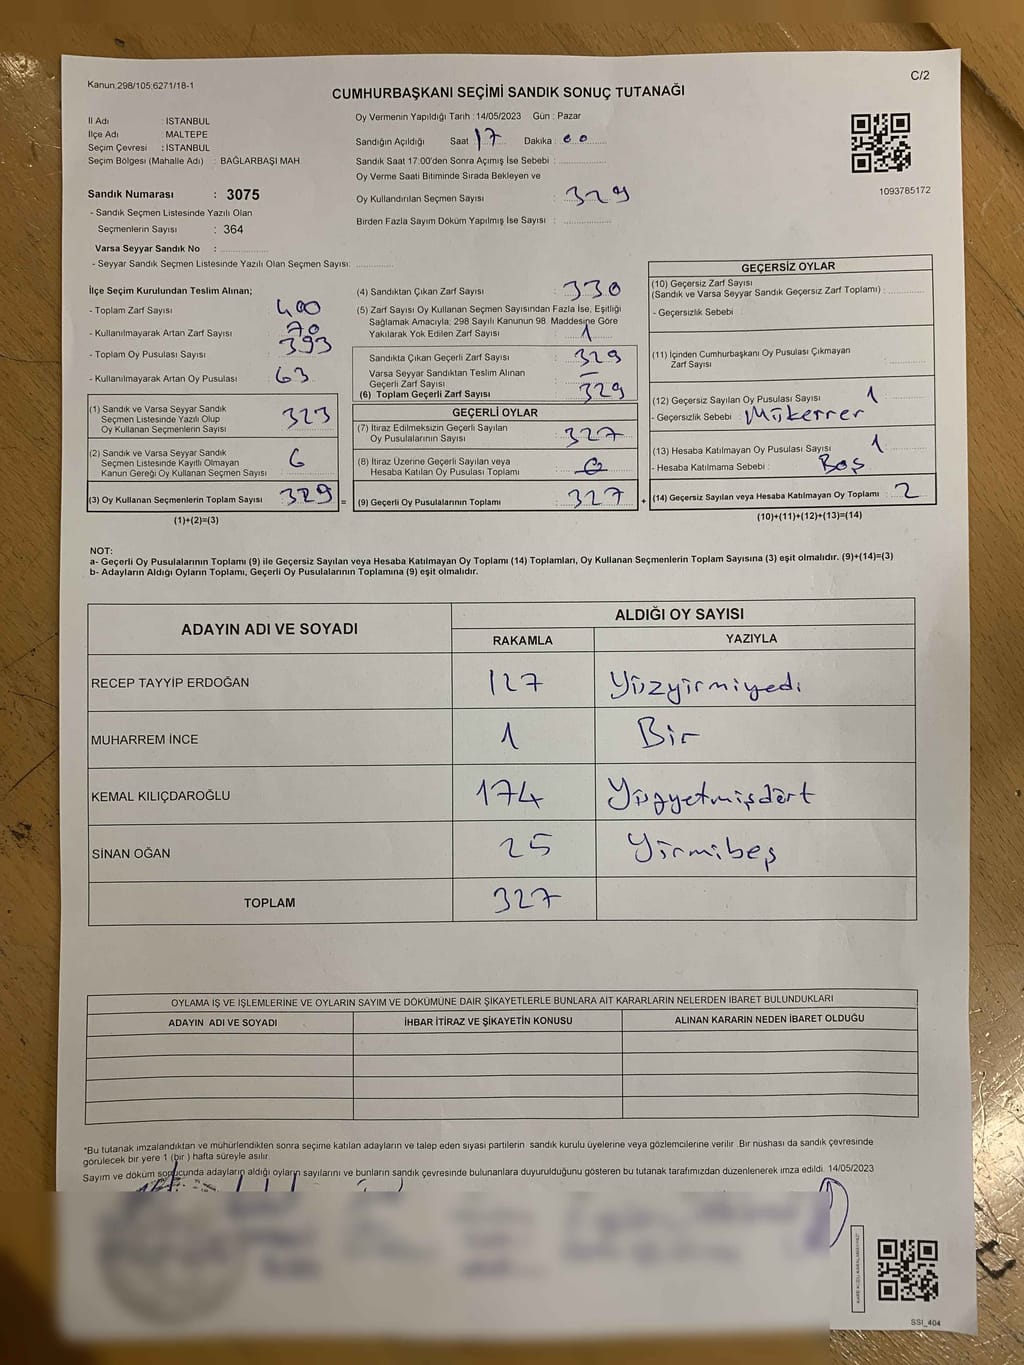 Kanun;298/105;6271/18-1
C/2
CUMHURBAŞKANI SEÇİMİ SANDIK SONUÇ TUTANAĞI
İl Adı : İSTANBUL
İlçe Adı : MALTEPE
Seçim Çevresi : İSTANBUL
Seçim Bölgesi (Mahalle Adı) : BAĞLARBAŞI MAH
Sandık Numarası : 3075
- Sandık Seçmen Listesinde Yazılı Olan
Seçmenlerin Sayısı : 364
Varsa Seyyar Sandık No :
- Seyyar Sandık Seçmen Listesinde Yazılı Olan Seçmen Sayısı:
Oy Vermenin Yapıldığı Tarih : 14/05/2023 Gün : Pazar
Sandığın Açıldığı Saat : 17 Dakika : 00
Sandık Saat 17:00'den Sonra Açımış İse Sebebi :
Oy Verme Saati Bitiminde Sırada Bekleyen ve
Oy Kullandırılan Seçmen Sayısı : 329
Birden Fazla Sayım Döküm Yapılmış İse Sayısı :
1093785172
İlçe Seçim Kurulundan Teslim Alınan;
- Toplam Zarf Sayısı : 400
- Kullanılmayarak Artan Zarf Sayısı : 70
- Toplam Oy Pusulası Sayısı : 393
- Kullanılmayarak Artan Oy Pusulası : 63
(1) Sandık ve Varsa Seyyar Sandık
Seçmen Listesinde Yazılı Olup
Oy Kullanan Seçmenlerin Sayısı : 323
(2) Sandık ve Varsa Seyyar Sandık
Seçmen Listesinde Kayıtlı Olmayan
Kanun Gereği Oy Kullanan Seçmen Sayısı : 6
(3) Oy Kullanan Seçmenlerin Toplam Sayısı : 329 =
(1)+(2)=(3)
(4) Sandıktan Çıkan Zarf Sayısı : 330
(5) Zarf Sayısı Oy Kullanan Seçmen Sayısından Fazla İse, Eşitliği
Sağlamak Amacıyla; 298 Sayılı Kanunun 98. Maddesine Göre
Yakılarak Yok Edilen Zarf Sayısı : 1
Sandıkta Çıkan Geçerli Zarf Sayısı : 329
Varsa Seyyar Sandıktan Teslim Alınan
Geçerli Zarf Sayısı : –
(6) Toplam Geçerli Zarf Sayısı : 329
GEÇERLİ OYLAR
(7) İtiraz Edilmeksizin Geçerli Sayılan
Oy Pusulalarının Sayısı : 327
(8) İtiraz Üzerine Geçerli Sayılan veya
Hesaba Katılan Oy Pusulası Toplamı : 0
(9) Geçerli Oy Pusulalarının Toplamı : 327 +
GEÇERSİZ OYLAR
(10) Geçersiz Zarf Sayısı
(Sandık ve Varsa Seyyar Sandık Geçersiz Zarf Toplamı) :
- Geçersizlik Sebebi :
(11) İçinden Cumhurbaşkanı Oy Pusulası Çıkmayan
Zarf Sayısı :
(12) Geçersiz Sayılan Oy Pusulası Sayısı : 1
- Geçersizlik Sebebi : Mükerrer
(13) Hesaba Katılmayan Oy Pusulası Sayısı : 1
- Hesaba Katılmama Sebebi : Boş
(14) Geçersiz Sayılan veya Hesaba Katılmayan Oy Toplamı : 2
(10)+(11)+(12)+(13)=(14)
NOT:
a- Geçerli Oy Pusulalarının Toplamı (9) ile Geçersiz Sayılan veya Hesaba Katılmayan Oy Toplamı (14) Toplamları, Oy Kullanan Seçmenlerin Toplam Sayısına (3) eşit olmalıdır. (9)+(14)=(3)
b- Adayların Aldığı Oyların Toplamı, Geçerli Oy Pusulalarının Toplamına (9) eşit olmalıdır.
ADAYIN ADI VE SOYADI
ALDIĞI OY SAYISI
RAKAMLA YAZIYLA
RECEP TAYYİP ERDOĞAN 127 Yüzyirmiyedi
MUHARREM İNCE 1 Bir
KEMAL KILIÇDAROĞLU 174 Yüzyetmişdört
SİNAN OĞAN 25 Yirmibeş
TOPLAM 327
OYLAMA İŞ VE İŞLEMLERİNE VE OYLARIN SAYIM VE DÖKÜMÜNE DAİR ŞİKAYETLERLE BUNLARA AİT KARARLARIN NELERDEN İBARET BULUNDUKLARI
ADAYIN ADI VE SOYADI İHBAR İTİRAZ VE ŞİKAYETİN KONUSU ALINAN KARARIN NEDEN İBARET OLDUĞU
*Bu tutanak imzalandıktan ve mühürlendikten sonra seçime katılan adayların ve talep eden siyasi partilerin sandık kurulu üyelerine veya gözlemcilerine verilir. Bir nüshası da sandık çevresinde
görülecek bir yere 1 (bir) hafta süreyle asılır.
Sayım ve döküm sonucunda adayların aldığı oyların sayılarını ve bunların sandık çevresinde bulunanlara duyurulduğunu gösteren bu tutanak tarafımızdan düzenlenerek imza edildi. 14/05/2023
SSI_404